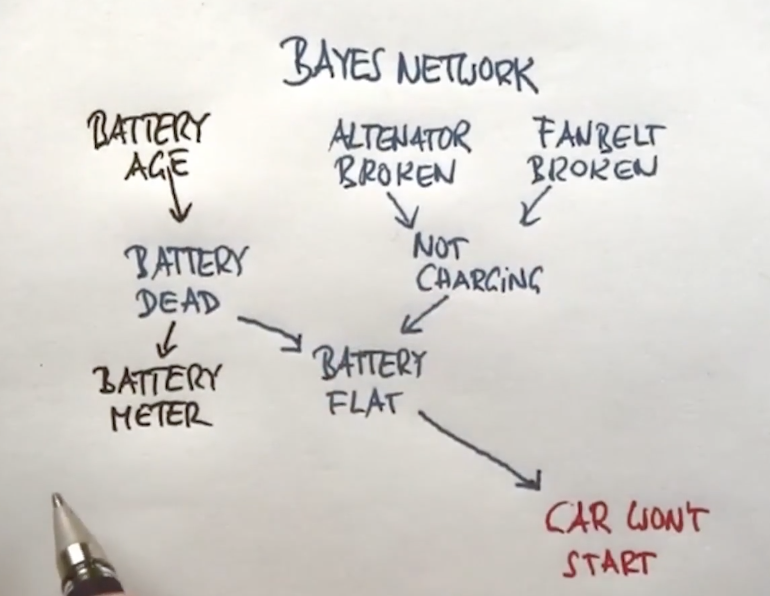 BAYES NETWORK
BATTERY
AGE
ALTENATOR
BROKEN
FANBELT
BROKEN
BATTERY
DEAD
NOT
CHARGiNG
BATTERY
METER
BATTERY
FLAT
CAR WON'T
START